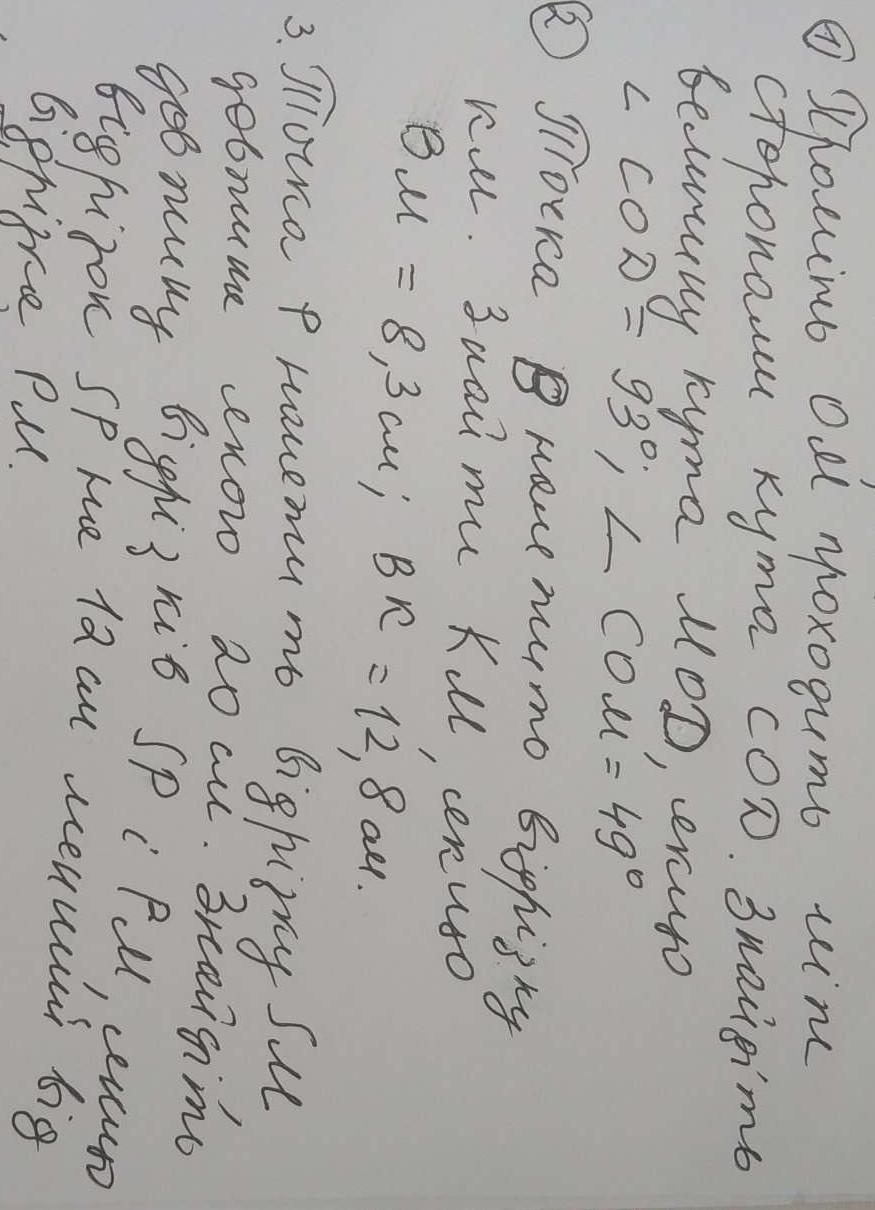 1 Промінь ОМ проходить між
сторонами кута СОD. Знайдіть
величину кута МОD, якщо
∠ СОD = 93°, ∠ СОМ = 49°
2 Точка В належить відрізку
КМ. Знайти КМ, якщо
ВМ = 8,3см; ВК = 12,8см.
3. Точка Р належить відрізку SM
довжина якого 20 см. Знайдіть
довжину відрізків SP і РМ, якщо
відрізок SP на 12 см менший від
відрізка РМ.